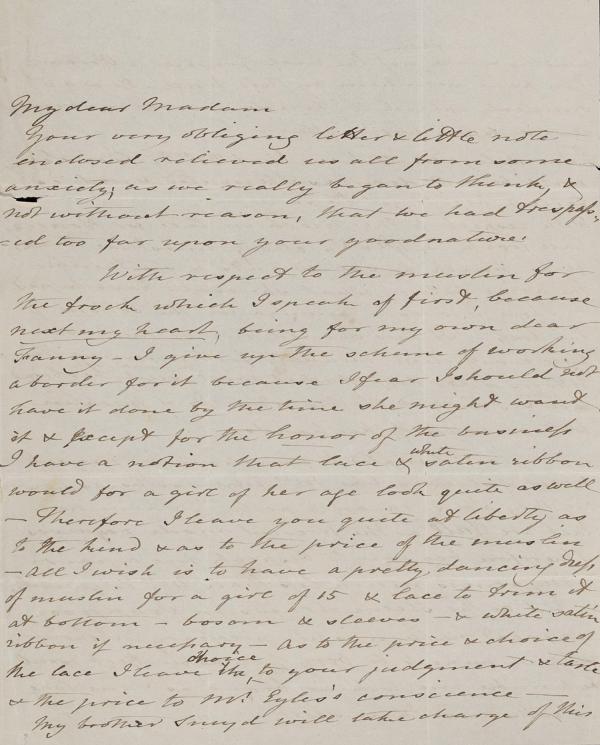 My dear Madam
Your very obliging letter & little note
enclosed relieved us all from some
anxiety; as we really began to think, &
not without reason, that we had trespass-
-ed too far upon your goodnature.
With respect to the muslin for
the frock which I speak of first, because
next my heart, being for my own dear
Fanny - I give up the scheme of working
a border for it because I fear I should not
have it done by the time she might want
it & except for the honor of the business
I have a notion that lace & white satin ribbon
would for a girl of her age look quite as well
- Therefore I leave you quite at liberty as
to the kind & as to the price of the muslin
- all I wish is to have a pretty dancing dress
of muslin for a girl of 15 & lace to trim it
at bottom - bosom & sleeves - & white satin
ribbon if necessary - as to the price & choice of
the lace I leave the choice to your judgment & taste
& the price to Mr. Eyles's conscience -
My brother Sneyd will take charge of this